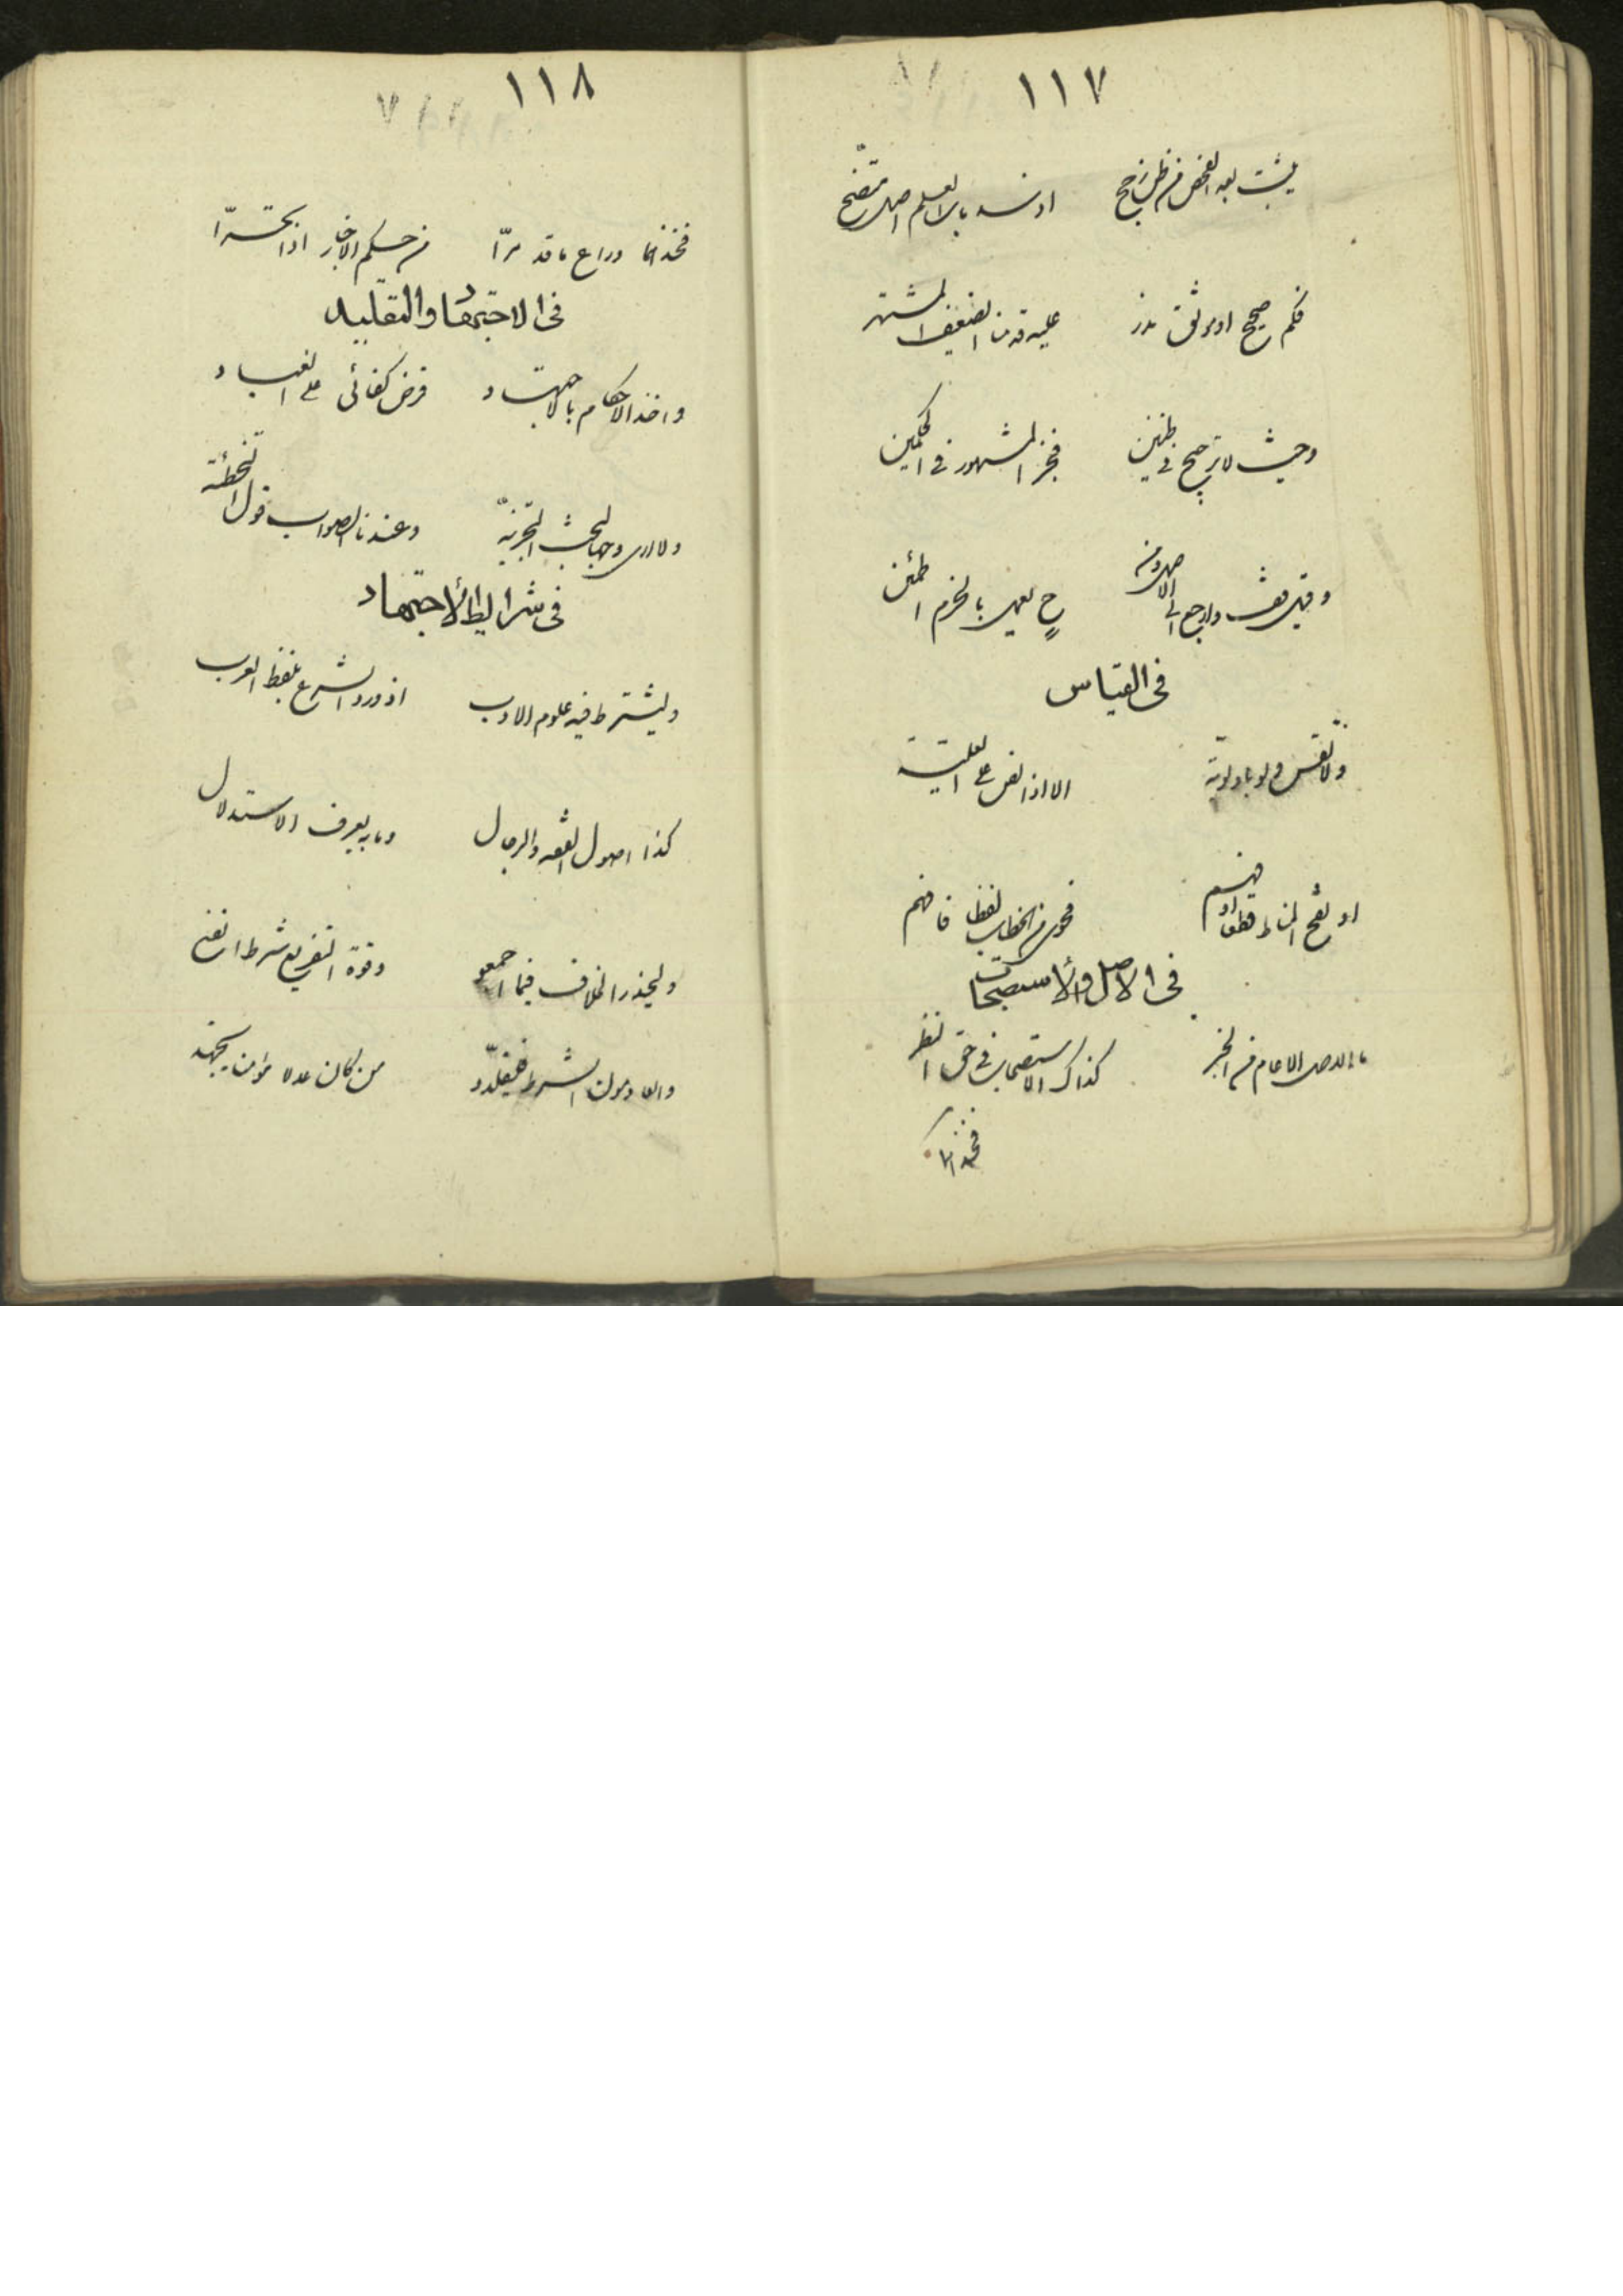 ١١٧
يثبت بعد الفحص من ظن رجح
فكم صحيح او موثق نذر عليه قدمنا الضعيف المشتهر
وحيث لا ترجيح في ظنين فخير المشهور في الحكمين
وقيل قف وارجع الى الاصل
في القياس
ولا تقس ولو باولوية الا اذا نص على العلية
او نقح المناط قطعا او فهم فحوى من الخطاب لفظا فافهم
في الاصل والاستصحاب
كذلك الاستصحاب في حق النظر
فخذ
١١٨
فخذهما وراع ما قد مرا من حكم الاخبار اذا
في الاجتهاد والتقليد
واخذ الاحكام بالاجتهاد فرض كفائي على العباد
ولا ارى وجها لبحث التجزية وعندنا الصواب قول التخطئة
في شرايط الاجتهاد
وليشترط فيه علوم الادب اذ ورد الشرع بلفظ العرب
كذا اصول الفقه والرجال وما به يعرف الاستدلال
وليحذر الخلاف فيما اجمعوا وقوة التفريع شرط
والعادمون الشرط فليقلدوا من كان عدلا مؤمنا يجتهد